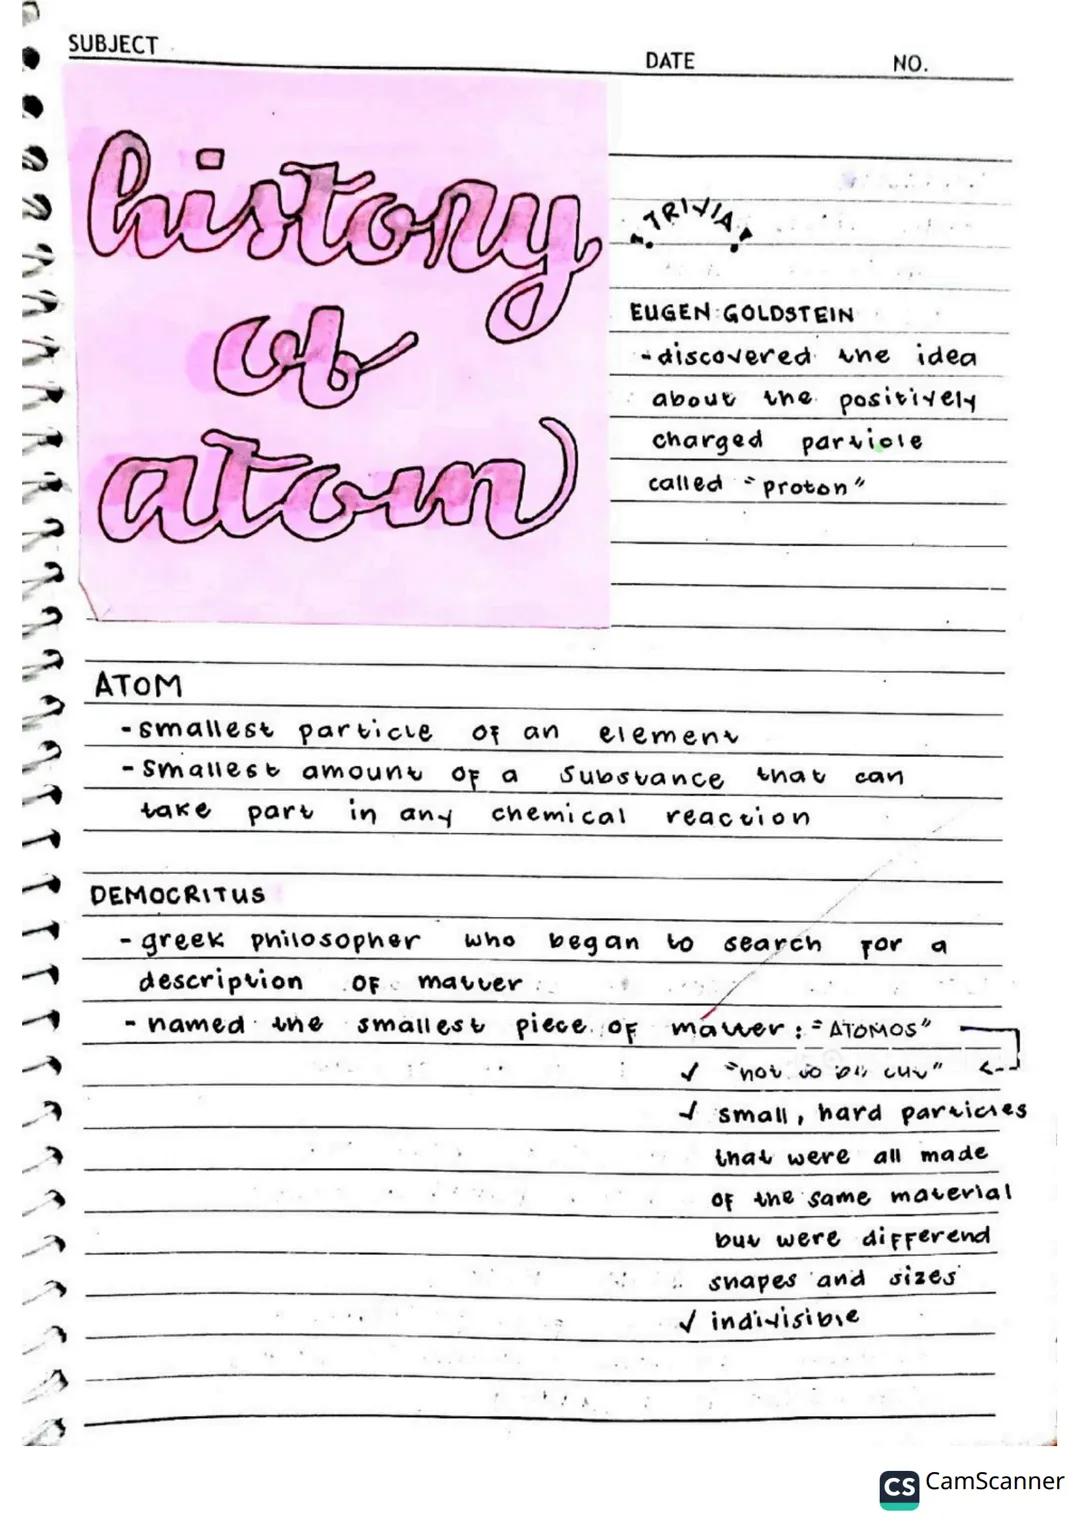 SUBJECT
DATE
NO.
history
of
atom
TRIVIA
EUGEN GOLDSTEIN
- discovered the idea
about the positively
charged particle
called "proton"
ATOM
- smallest particle of an element
- smallest amount of a substance that can
take part in any chemical reaction
DEMOCRITUS
- greek philosopher who began to search for a
description of matter
- named the smallest piece of matter : "ATOMOS"
✓ "not to be cut"
✓ small, hard particles
that were all made
of the same material
but were differend
shapes and sizes
✓ indivisible
CS CamScanner